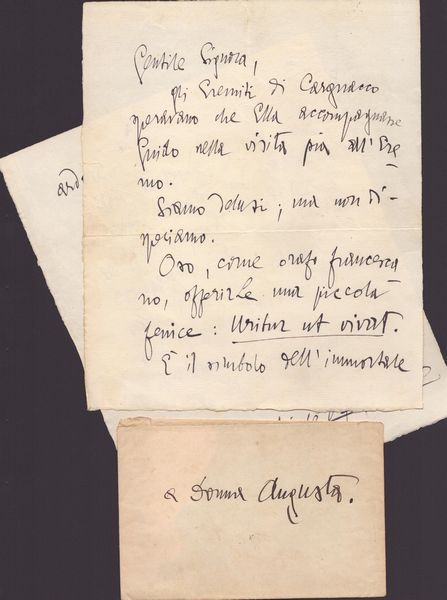 Gentile Signora,
gli Eremiti di Cargnacco
speravano che Ella accompagnasse
Guido nella visita pia all'Ere-
mo.
Siamo delusi; ma non di-
speriamo.
Oso, come orafo francesca-
no, offrirLe una piccola
fenice: Uritur ut vivat.
È il simbolo dell'immortale
ard
a Donna Augusta.